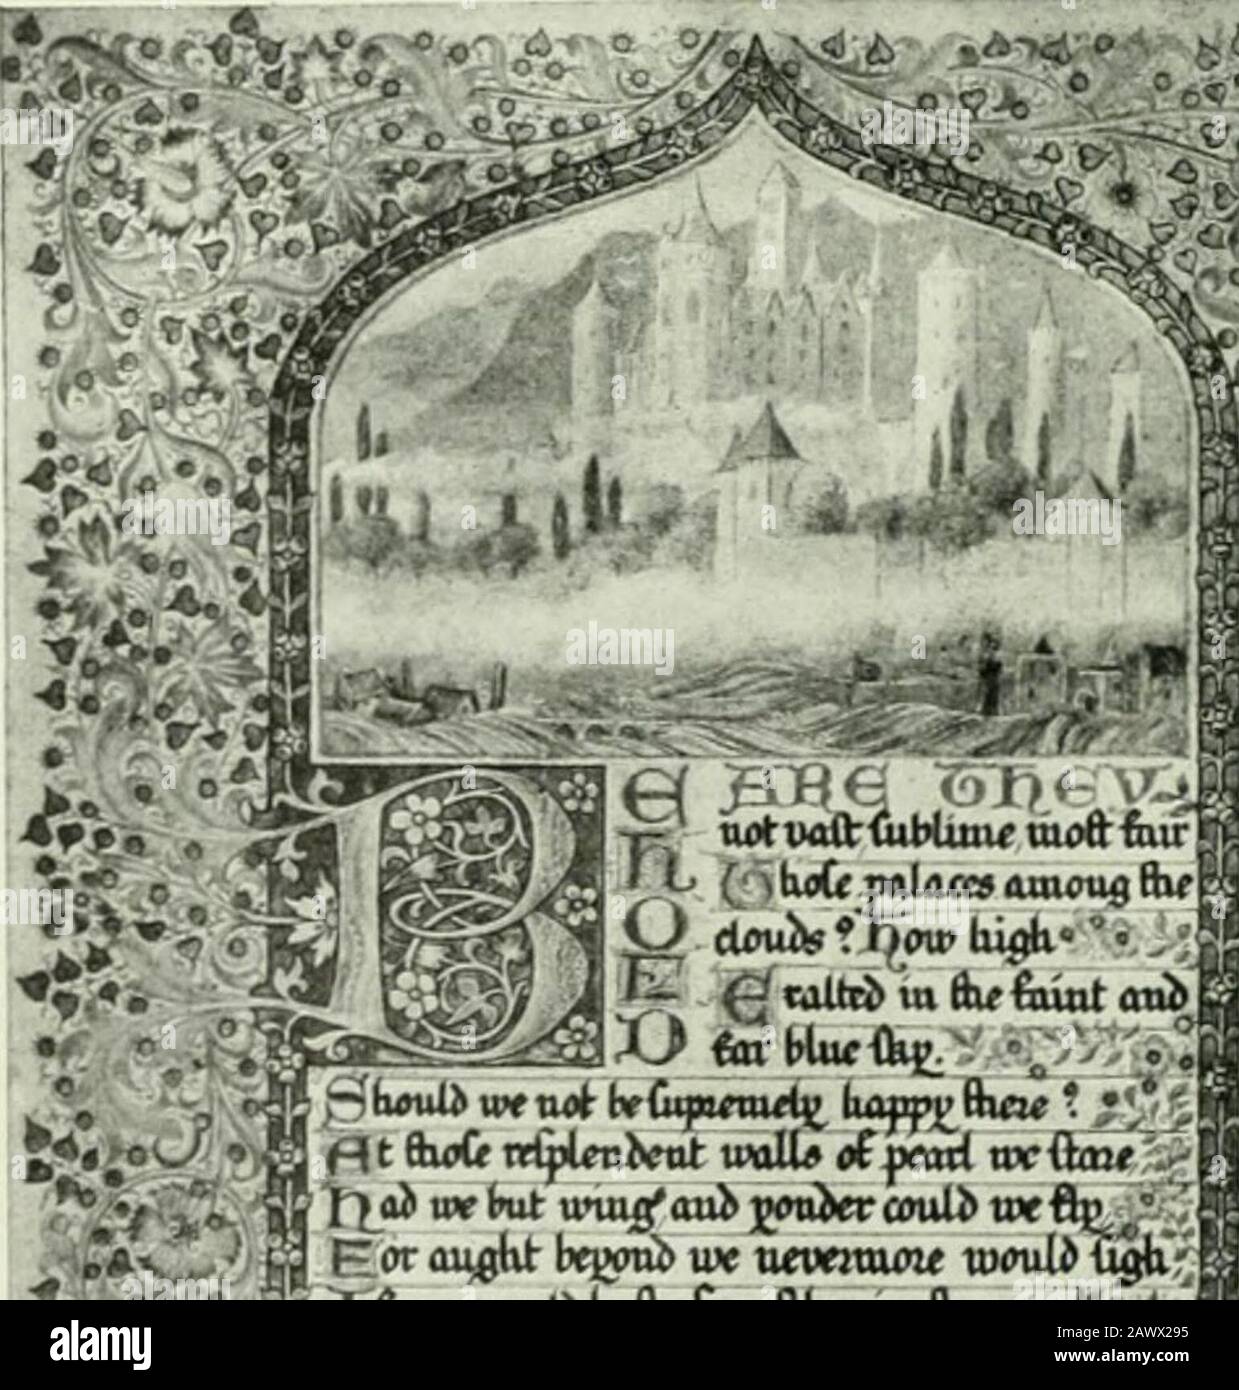 BEHOLD
ARE THEY
not vaſt ſublime, moſt fair
Thoſe palaces among the
clouds? How high
Exalted in the faint and
far blue ſky.
Should we not be ſupremely happy there?
At thoſe reſplendent walls of pearl we ſtare
Had we but wings and yonder could we fly
For aught beyond we nevermore would ſigh
alamy
Image ID: 2AWX295
www.alamy.com